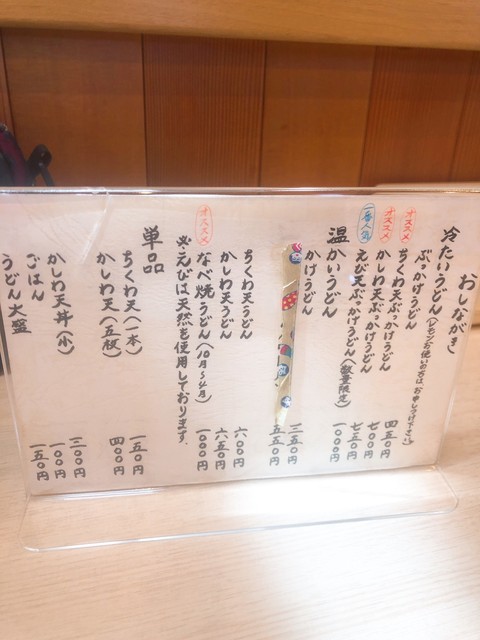 おしながき
冷たいうどん(レモンお使いの方は、お申しつけ下さい)
ぶっかけうどん 四五〇円
オススメ ちくわ天ぶっかけうどん 七〇〇円
オススメ かしわ天ぶっかけうどん 七五〇円
一番人気 えび天ぶっかけうどん(数量限定) 一〇〇〇円
温かいうどん
かけうどん 三五〇円
五五〇円
ちくわ天うどん 六〇〇円
かしわ天うどん 六五〇円
オススメ なべ焼うどん(10月〜4月) 一〇〇〇円
※えびは天然を使用しております。
単品
ちくわ天(一本) 一五〇円
かしわ天(五枚) 四〇〇円
かしわ天丼(小) 三〇〇円
ごはん 一〇〇円
うどん大盛 一五〇円